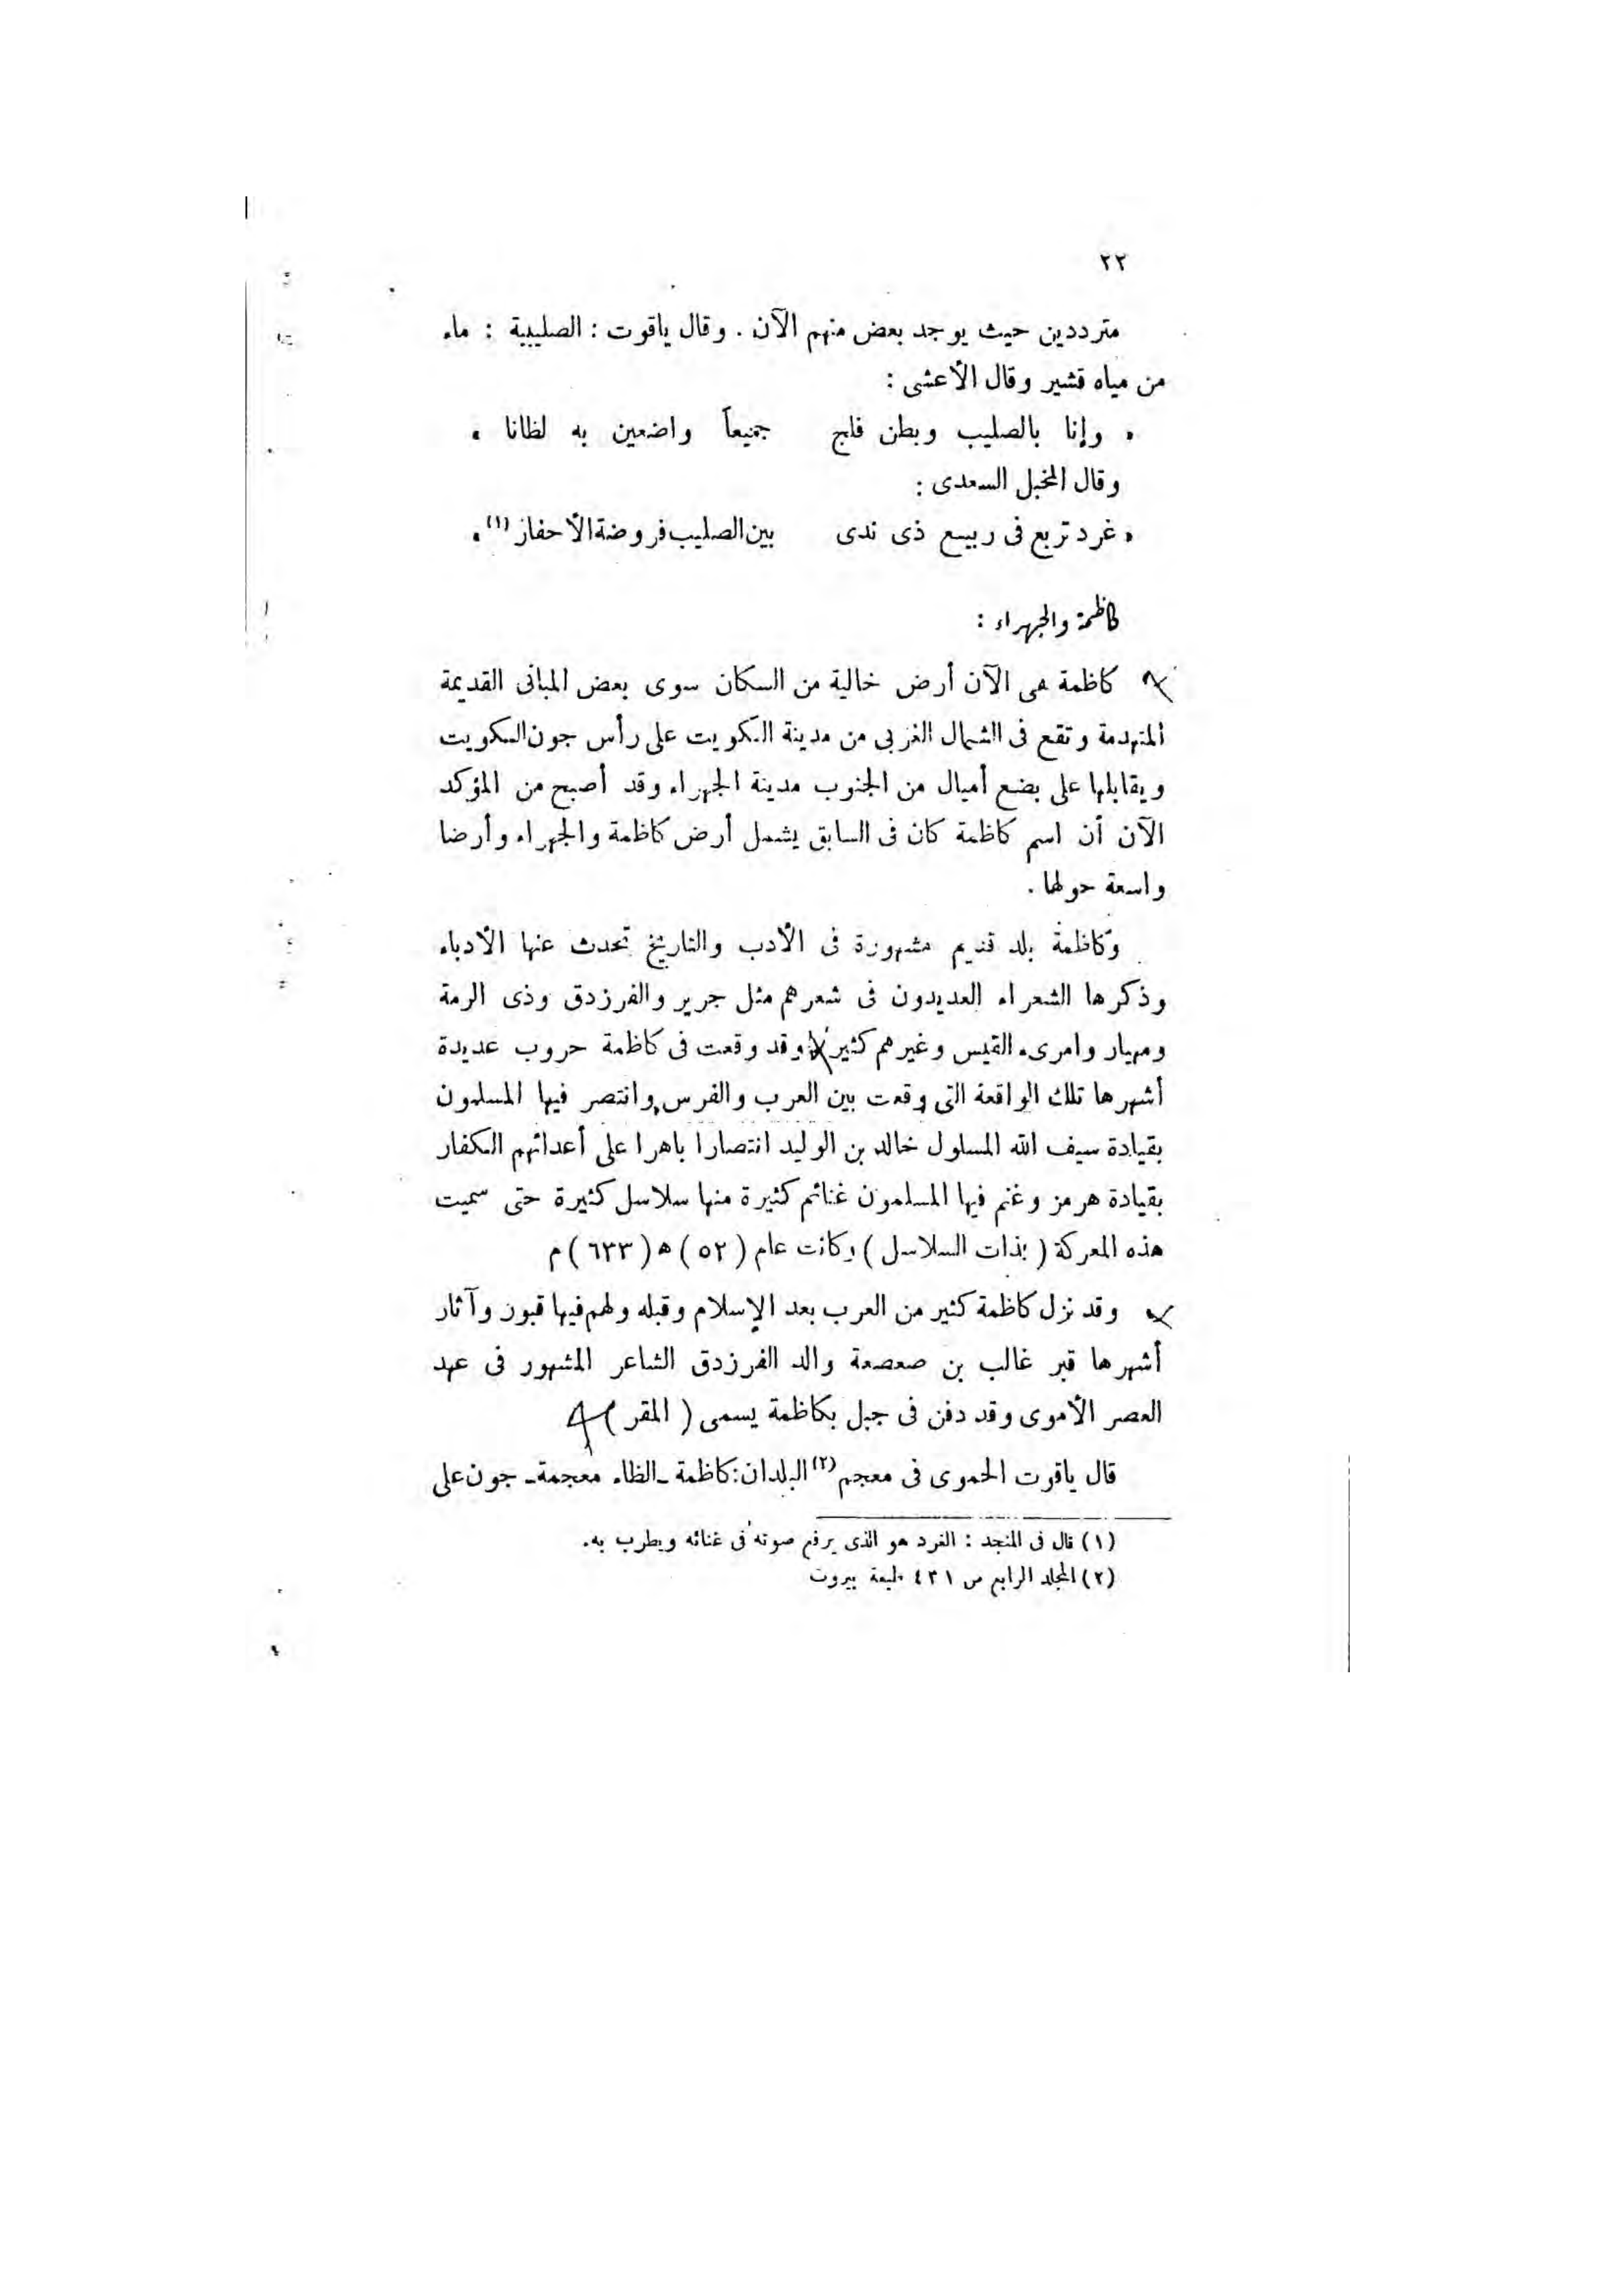 ٢٢
مترددين حيث يوجد بعض منهم الآن . وقال ياقوت : الصليبية : ماء
من مياه قشير وقال الأعشى :
« وإنا بالصليب وبطن فلج جميعاً واضعين به لظانا »
وقال المخبل السعدى :
« غرد تربع فى ربيع ذى ندى بين الصليب فروضة الأحفاز (١) »
كاظمة والجهراء :
كاظمة هى الآن أرض خالية من السكان سوى بعض المبانى القديمة
المنهدمة وتقع فى الشمال الغربى من مدينة الكويت على رأس جون الكويت
ويقابلها على بضع أميال من الجنوب مدينة الجهراء وقد أصبح من المؤكد
الآن أن اسم كاظمة كان فى السابق يشمل أرض كاظمة والجهراء وأرضا
واسعة حولها .
وكاظمة بلد قديم مشهورة فى الأدب والتاريخ تحدث عنها الأدباء
وذكرها الشعراء العديدون فى شعرهم مثل جرير والفرزدق وذى الرمة
ومهيار وامرىء القيس وغيرهم كثير وقد وقعت فى كاظمة حروب عديدة
أشهرها تلك الواقعة التى وقعت بين العرب والفرس وانتصر فيها المسلمون
بقيادة سيف الله المسلول خالد بن الوليد انتصارا باهرا على أعدائهم الكفار
بقيادة هرمز وغنم فيها المسلمون غنائم كثيرة منها سلاسل كثيرة حتى سميت
هذه المعركة ( بذات السلاسل ) وكانت عام ( ٥٢ ) ه ( ٦٣٣ ) م
وقد نزل كاظمة كثير من العرب بعد الإسلام وقبله ولهم فيها قبور وآثار
أشهرها قبر غالب بن صعصعة والد الفرزدق الشاعر المشهور فى عهد
العصر الأموى وقد دفن فى جبل بكاظمة يسمى ( المقر )
قال ياقوت الحموى فى معجم (٢) البلدان : كاظمة ـ الظاء معجمة ـ جون على
(١) قال فى المنجد : الغرد هو الذى يرفع صوته فى غنائه ويطرب به .
(٢) المجلد الرابع ص ٤٣١ طبعة بيروت